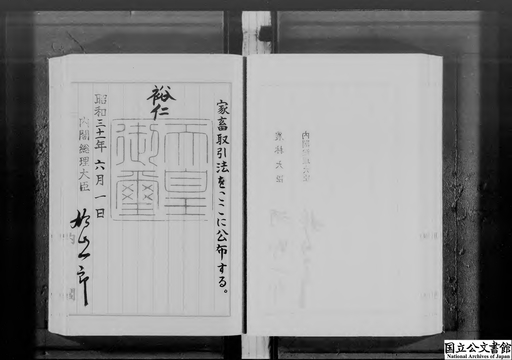 家畜取引法をここに公布する。
裕仁
天皇
御璽
昭和三十一年六月一日
内閣総理大臣
鳩山一郎
内閣総理大臣
農林大臣
国立公文書館
National Archives of Japan